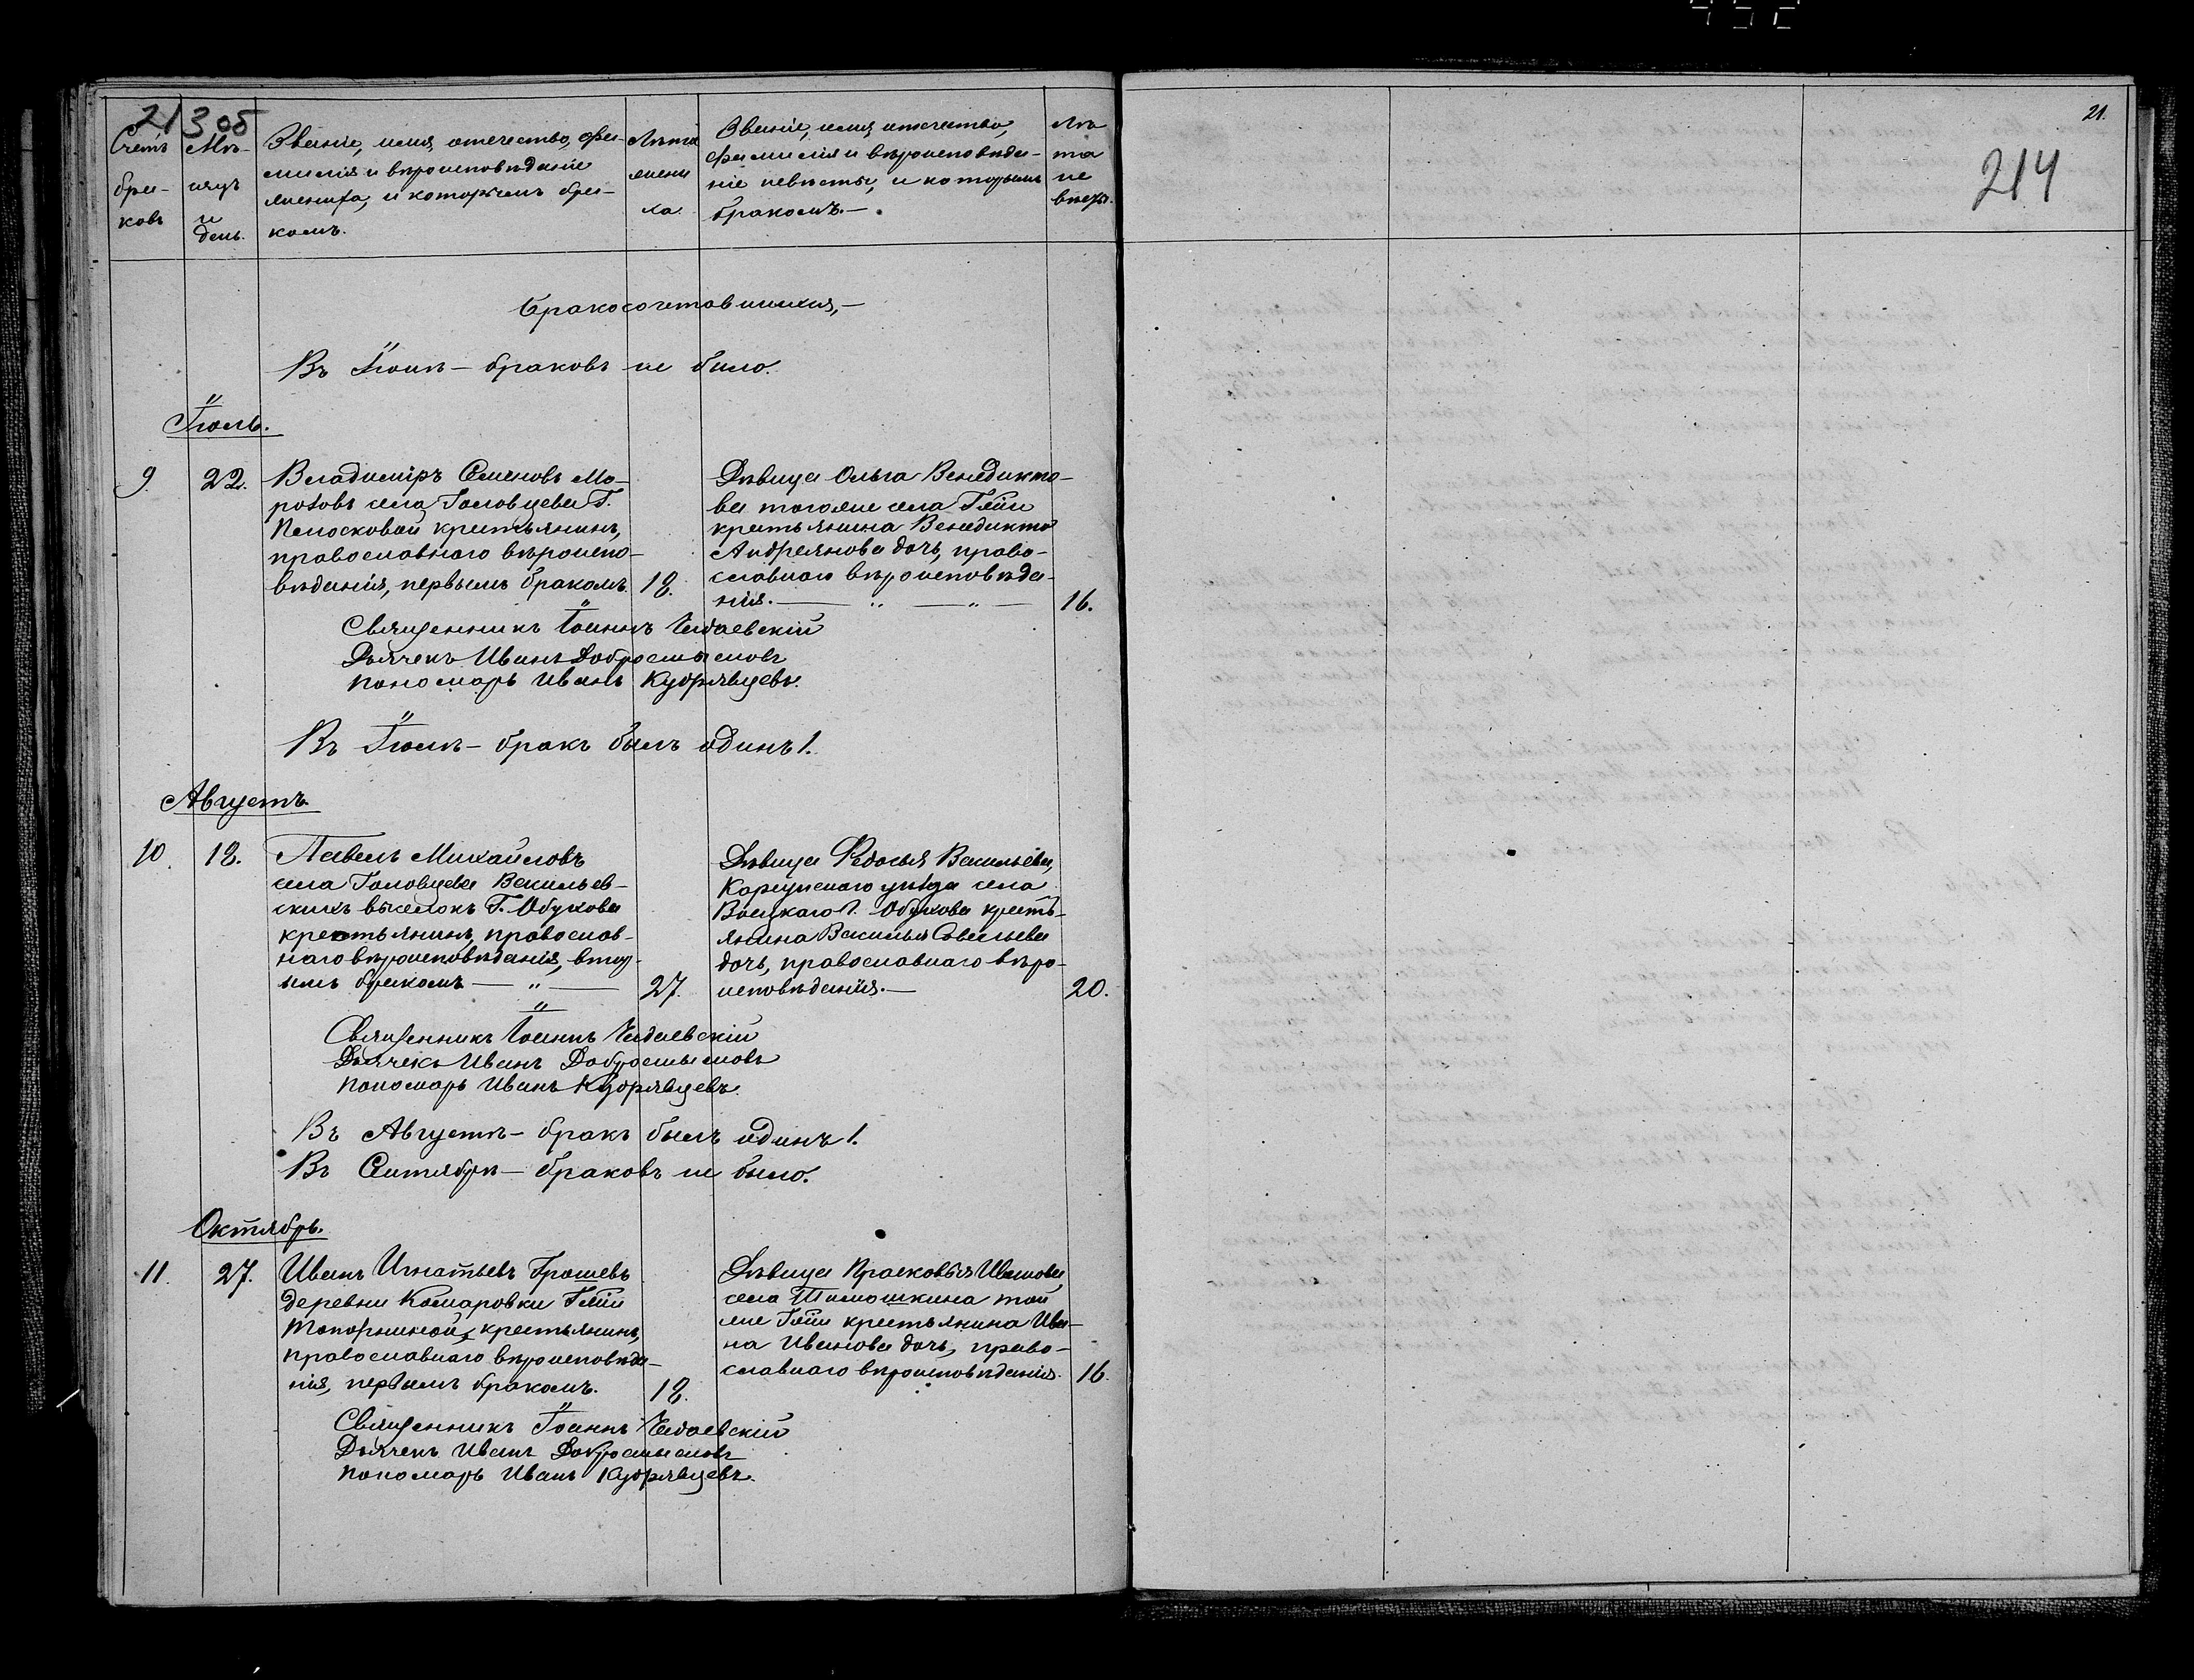 213 об
Счетъ браковъ
Мѣсяцъ и день.
Званіе, имя, отечество, фамилія и вѣроисповѣданіе жениха, и которымъ бракомъ.
Лѣта жениха.
Званіе, имя, отечество, фамилія и вѣроисповѣданіе невѣсты, и которымъ бракомъ. —
Лѣта невѣсты.
21.
214
Бракосочетавшихся, —
Въ Іюнѣ — браковъ не было.
Іюль.
9. 22.
Владиміръ Семеновъ Мо-
розовъ села Головцева Г.
крестьянинъ,
православнаго вѣроиспо-
вѣданія, первымъ бракомъ. 18.
Дѣвица Ольга Венедикто-
ва тогоже села Г-жи
крестьянина Венедикта
Андреянова дочь, право-
славнаго вѣроисповѣда-
нія. — „ — „ — 16.
Священникъ Іоаннъ Чидаевскій
Дьячекъ Иванъ Добросмысловъ
Пономарь Иванъ Кудрявцевъ.
Въ Іюлѣ — бракъ былъ одинъ 1.
Августъ.
10. 18.
Павелъ Михайловъ
села Головцева Васильев-
скихъ выселокъ Г. Обухова
крестьянинъ, православ-
наго вѣроисповѣданія, втор-
ымъ бракомъ — „ — 27.
Дѣвица Ѳедосья Васильева,
Карсунскаго уѣзда села
Г. Обухова кресть-
янина Василья Савельева
дочь, православнаго вѣро-
исповѣданія. — 20.
Священникъ Іоаннъ Чидаевскій
Дьячекъ Иванъ Добросмысловъ
Пономарь Иванъ Кудрявцевъ.
Въ Августѣ — бракъ былъ одинъ 1.
Въ Сентябрѣ — браковъ не было.
Октябрь.
11. 27.
Иванъ Игнатьевъ Грошевъ
деревни Комаровки Г-жи
Топорниной, крестьянинъ,
православнаго вѣроисповѣда-
нія, первымъ бракомъ. 18.
Дѣвица Прасковья Иванова
села Тимошкина той
же Г-жи крестьянина Ива-
на Иванова дочь, право-
славнаго вѣроисповѣданія. 16.
Священникъ Іоаннъ Чидаевскій
Дьячекъ Иванъ Добросмысловъ
Пономарь Иванъ Кудрявцевъ.